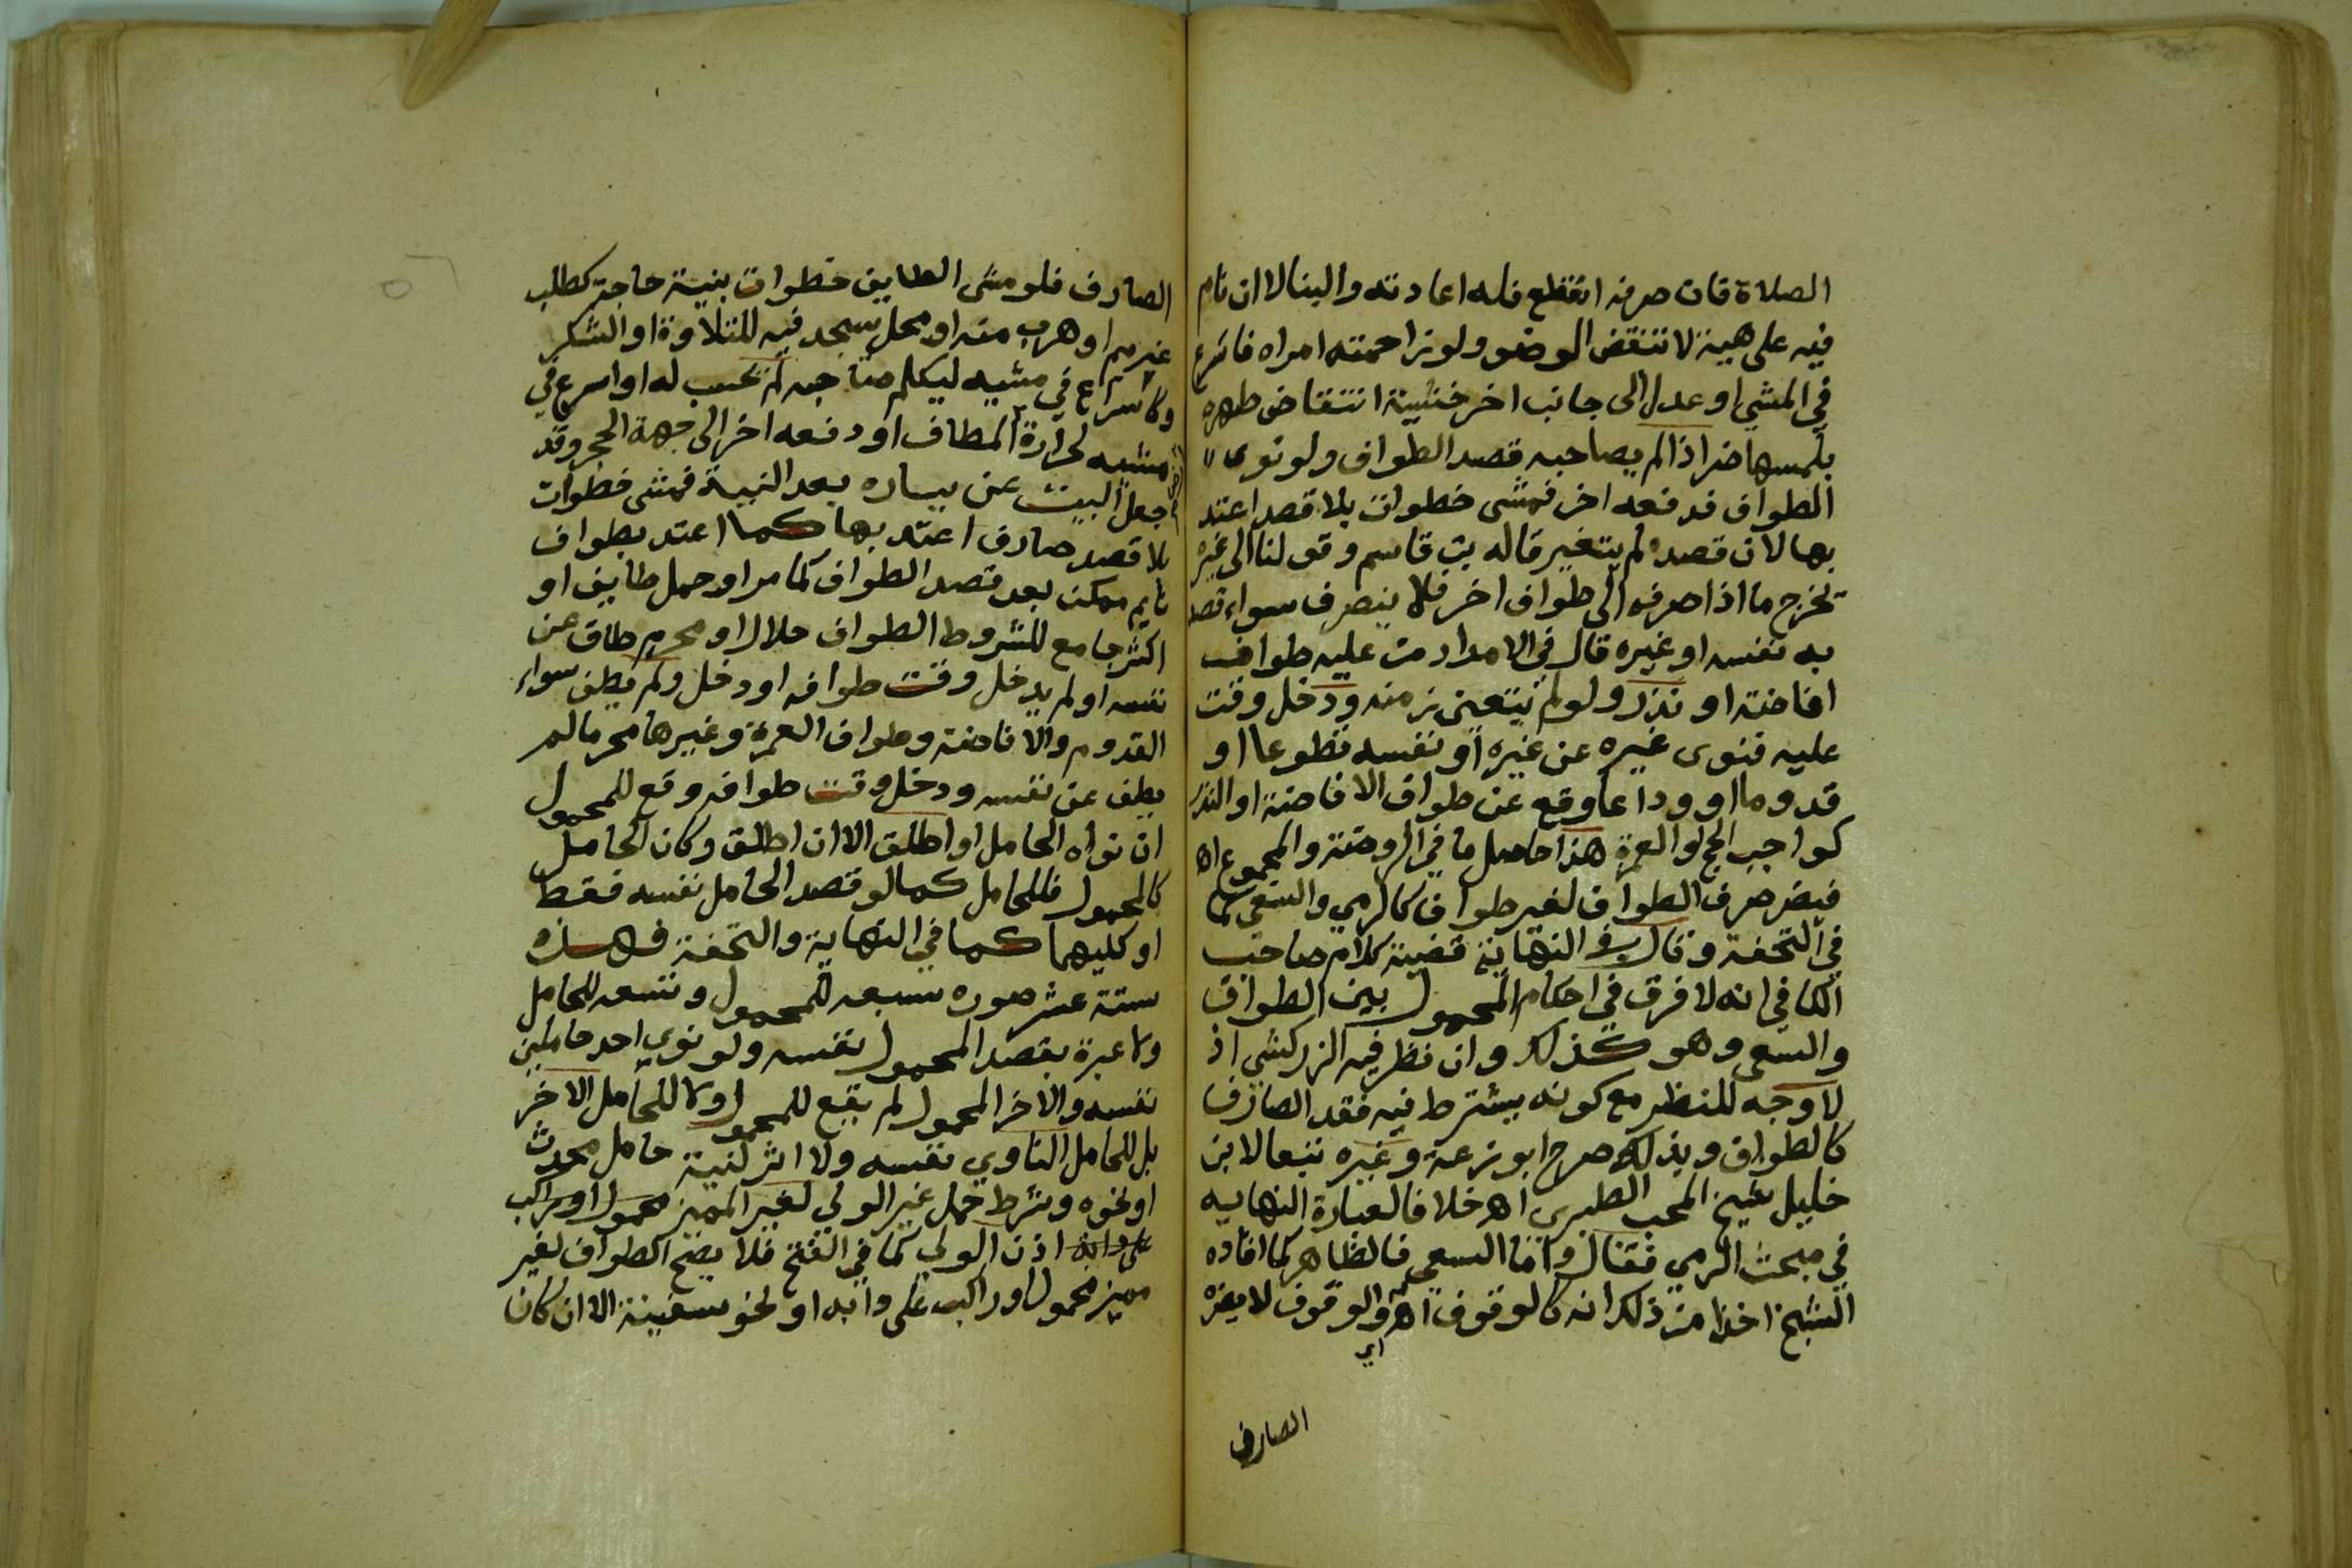 الصلاة فان صرفه انقطع فله اعادته والبنا لا ان نام
فيه على هيئة لا تنقض الوضو ولو زاحمته امراه فاسرع
في المشي او عدل الى جانب اخر خشية انتقاض طهره
بلمسها ضر اذا لم يصاحبه قصد الطواف ولو نوى
الطواف فدفعه اخر فمشى خطوات بلا قصد اعتد
بها لان قصده لم يتغير قاله بن قاسم وقولنا الى غيره
تخرج ما اذا صرفه الى طواف اخر فلا ينصرف سواء قصد
به نفسه او غيره قال في الامداد من عليه طواف
افاضة او نذر ولو لم يتعين زمنه ودخل وقت
عليه فنوى غيره عن غيره او نفسه تطوعا او
قدوما او وداعا وقع عن طواف الافاضة او النذر
كواجب الحج والعمرة هذا حاصل ما في الروضة والمجموع اه
فيضر صرف الطواف لغير طواف كالرمي والسعي كما
في التحفة وقال في النهاية قضية كلام صاحب
الكافي انه لا فرق في احكام المحمول بين الطواف
والسعي وهو كذلك وان نظر فيه الزركشي اذ
لا وجه للنظر مع كونه يشترط فيه فقد الصارف
كالطواف وبذلك صرح ابو زرعة وغيره تبعا لابن
خليل شيخ المحب الطبري اه خلافا لعبارة النهايه
في مبحث الرمي فقال واما السعي فالظاهر كما افاده
الشيخ اخذا من ذلك انه كالوقوف اه اي والوقوف لا يضره
الصارف
الصارف فلو مشى الطايف خطوات بنية حاجة كطلب
غريم او هرب منه او محل سجد فيه للتلاوة او الشكر
وكاسراع في مشيه ليكلم صاحبه لم تحسب له او اسرع في
مشيه لحرارة المطاف او دفعه اخر الى جهة الحجر وقد
جعل البيت عن يساره بعد النية فمشى خطوات
بلا قصد صارف اعتد بها كما اعتد بطواف
نايم ممكن بعد قصد الطواف كما مر او حمل طايف او
اكثر جامع للشروط الطواف حلالا او محرم طاف عن
نفسه او لم يدخل وقت طوافه او دخل ولم يطف سواء
القدوم والافاضة وطواف العمرة وغيرها محرما لم
يطف عن نفسه ودخل وقت طوافه وقع للمحمول
ان نواه الحامل او اطلق الا ان اطلق وكان الحامل
كالمحمول فللحامل كما لو قصد الحامل نفسه فقط
او كليهما كما في النهاية والتحفة فهذه
ستة عشر صوره سبعه للمحمول وتسعه للحامل
ولا عبرة بقصد المحمول نفسه ولو نوى احد حاملين
نفسه والاخر المحمول لم يقع للمحمول ولا للحامل الاخر
بل للحامل الناوي نفسه ولا اثر لنية حامل محدث
او نحوه وشرط حمل غير الولي لغير المميز محمول او راكب
على دابة اذن الولي كما في الفتح فلا يصح الطواف لغير
مميز محمول او راكب على دابه او نحو سفينة الا ان كان